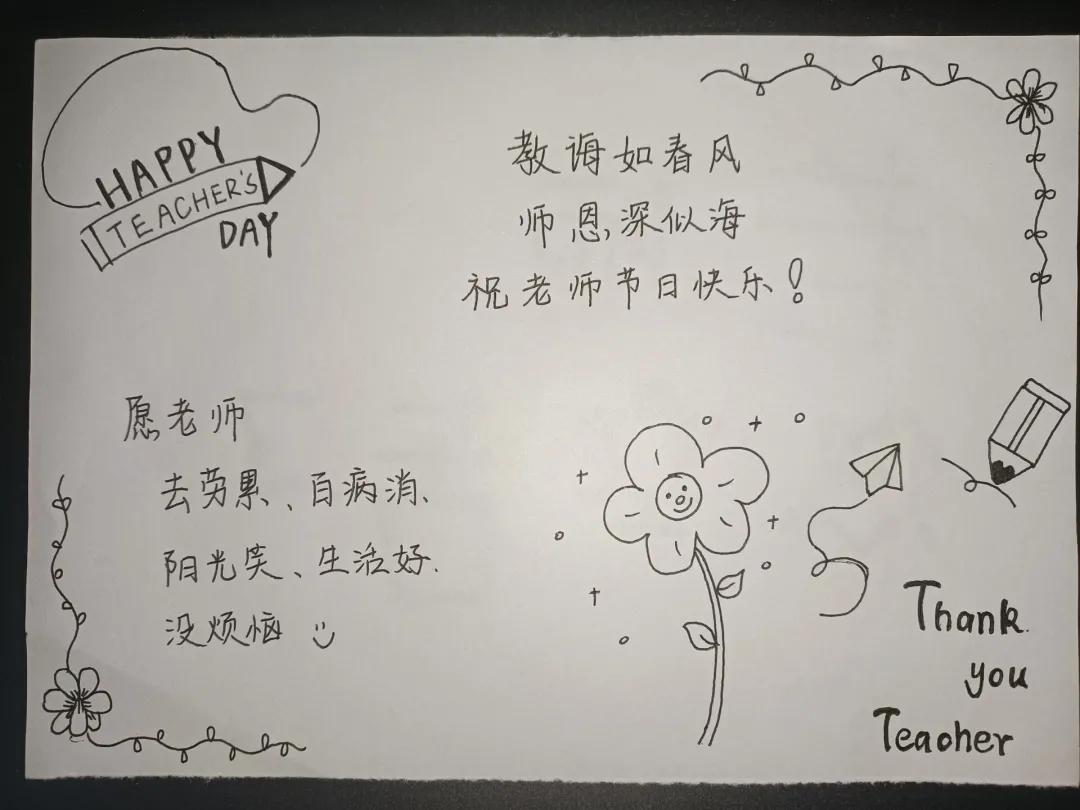 HAPPY
TEACHER'S
DAY
教诲如春风
师恩深似海
祝老师节日快乐！
愿老师
去劳累、百病消、
阳光笑、生活好.
没烦恼
Thank
you
Teacher